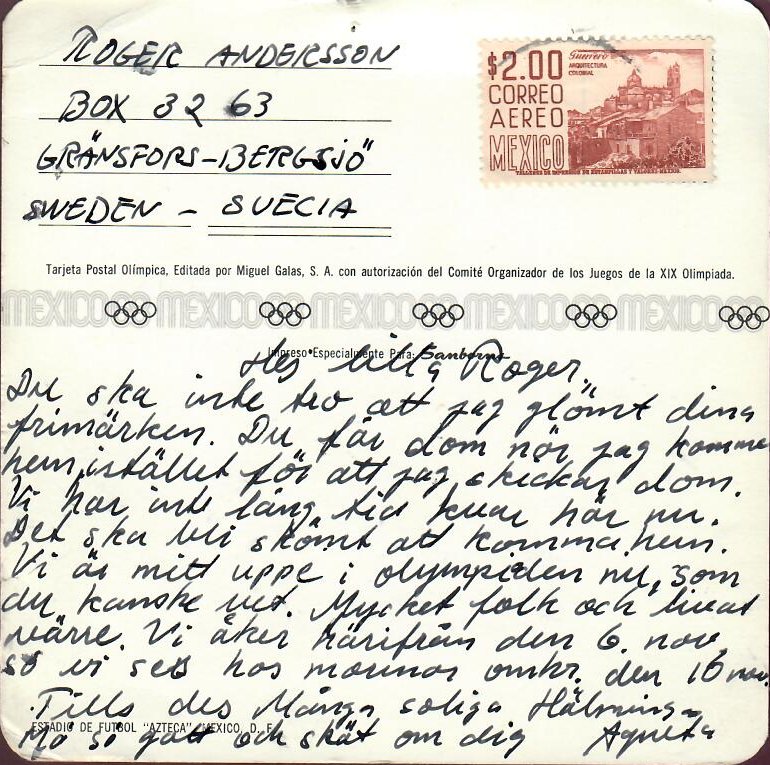 ROGER ANDERSSON
BOX 3263
GRÄNSFORS-BERGSJÖ
SWEDEN - SUECIA
$2.00
CORREO
AEREO
MEXICO
Guerrero
ARQUITECTURA
COLONIAL
TALLERES DE IMPRESION DE ESTAMPILLAS Y VALORES-MEXICO.
Tarjeta Postal Olímpica, Editada por Miguel Galas, S. A. con autorización del Comité Organizador de los Juegos de la XIX Olimpiada.
MEXICO MEXICO MEXICO MEXICO MEXICO
Impreso Especialmente Para: Sanborns
Hej lilla Roger.
Du ska inte tro att jag glömt dina
frimärken. Du får dom när jag kommer
hem, istället för att jag skickar dom.
Vi har inte lång tid kvar här nu.
Det ska bli skönt att komma hem.
Vi är mitt uppe i olympiden nu, som
du kanske vet. Mycket folk och livat
värre. Vi åker härifrån den 6. nov,
så vi ses hos mormor omkr. den 10 nov.
Tills des Många soliga Hälsningar
ESTADIO DE FUTBOL "AZTECA" MEXICO, D. F.
Må så gott och sköt om dig Agneta